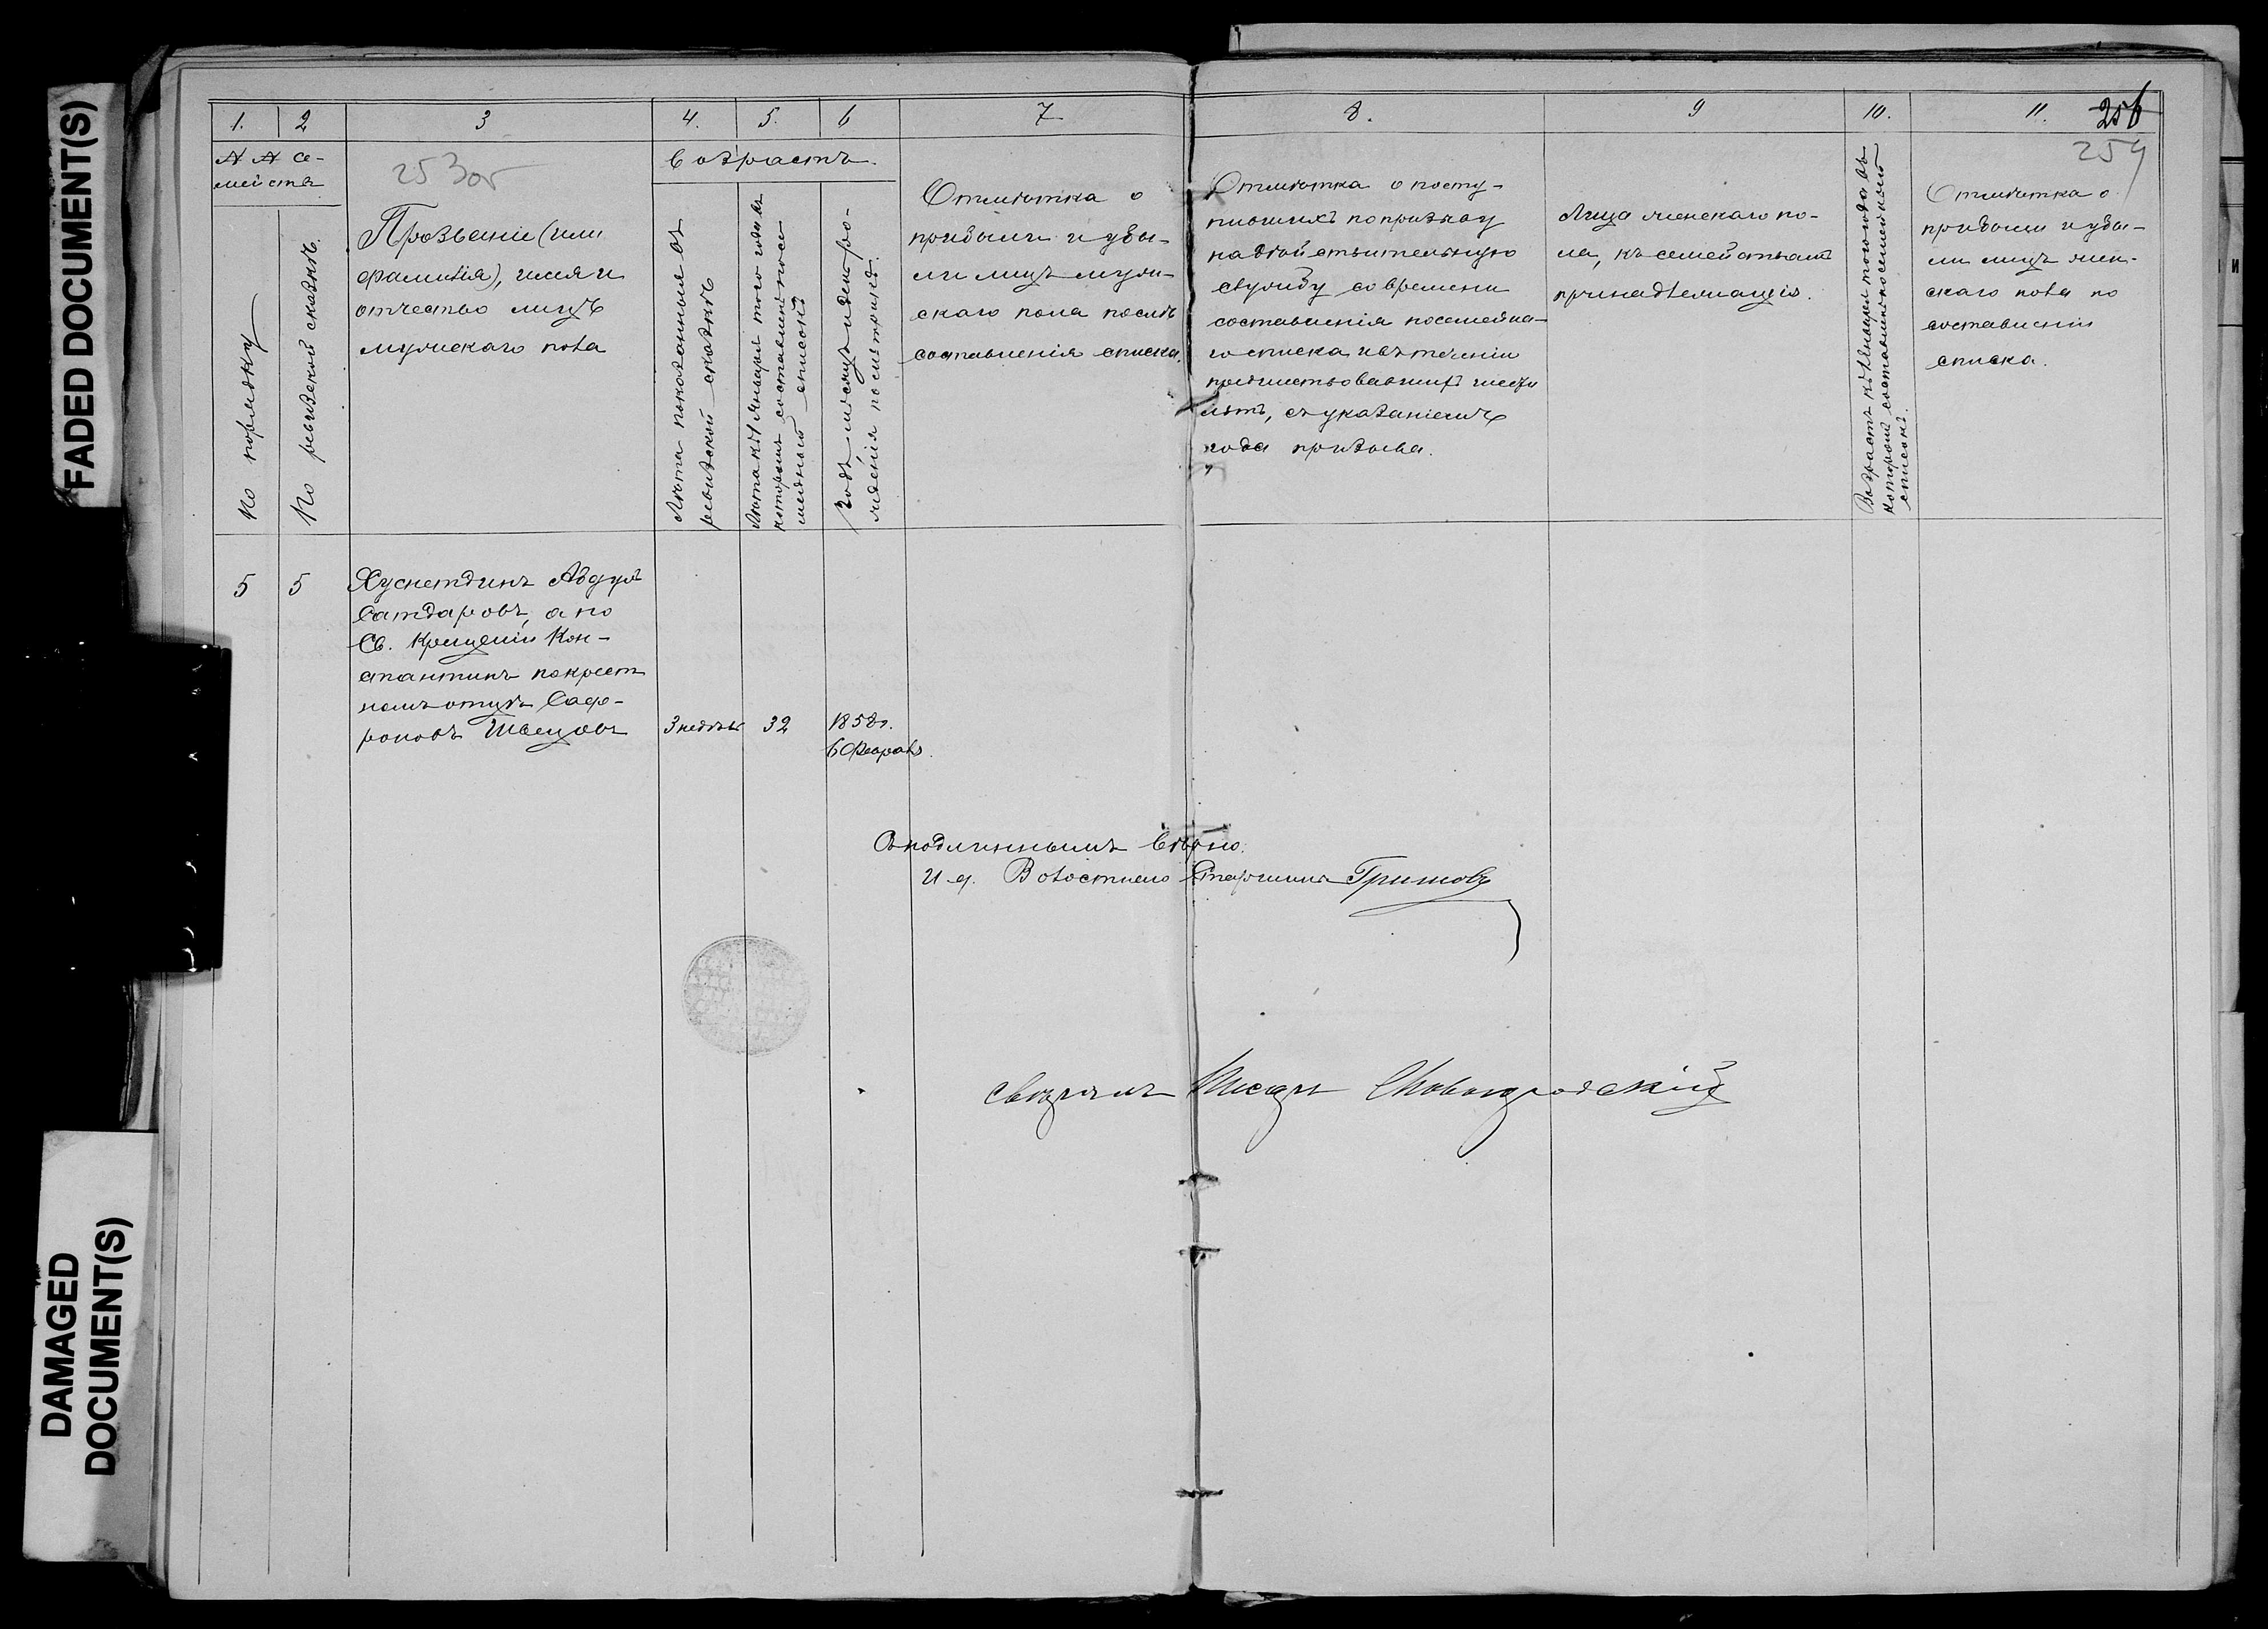 FADED DOCUMENT(S)
DAMAGED
DOCUMENT(S)
1.
2
3
4.
5.
6
7
8.
9
10.
11.
256
259
№ № се-
мействъ
По порядку
По ревизской сказкѣ.
25 Зоб
Прозваніе (или
фамилія), имя и
отчество лицъ
мужскаго пола
Возрастъ.
Лѣта показанныя въ
ревизской сказкѣ
Лѣта къ 1 января того года въ
которомъ составленъ посе
мейный списокъ
Годъ мѣсяцъ и день ро-
жденія по метрикѣ.
Отмѣтка о
прибыли и убы-
ли лицъ муж-
скаго пола послѣ
составленія списка.
Отмѣтка о посту-
пившихъ по призыву
на дѣйствительную
службу со времени
составленія посемейна-
го списка и въ теченіи
предшествовавшихъ шести
лѣтъ, съ указаніемъ
года призыва.
Лица женскаго по-
ла, къ семействамъ
принадлежащія.
Возрастъ къ 1 Января того года въ
который составленъ посемейный
списокъ.
Отмѣтка о
прибыли и убы-
ли лицъ жен-
скаго пола по
составленіи
списка.
5
5
Хуснетдинъ Абдулъ
Сатдаровъ, а по
Св. Крещеніи Кон-
стантинъ по крест
номъ отцѣ Саф-
роновъ Швецовъ
3 недѣль
32
1858 г.
6 Феврал.
Съ подлиннымъ Вѣрно:
И. д. Волостнаго Старшины Гришовъ
Свѣрялъ Писарь Новогродскій